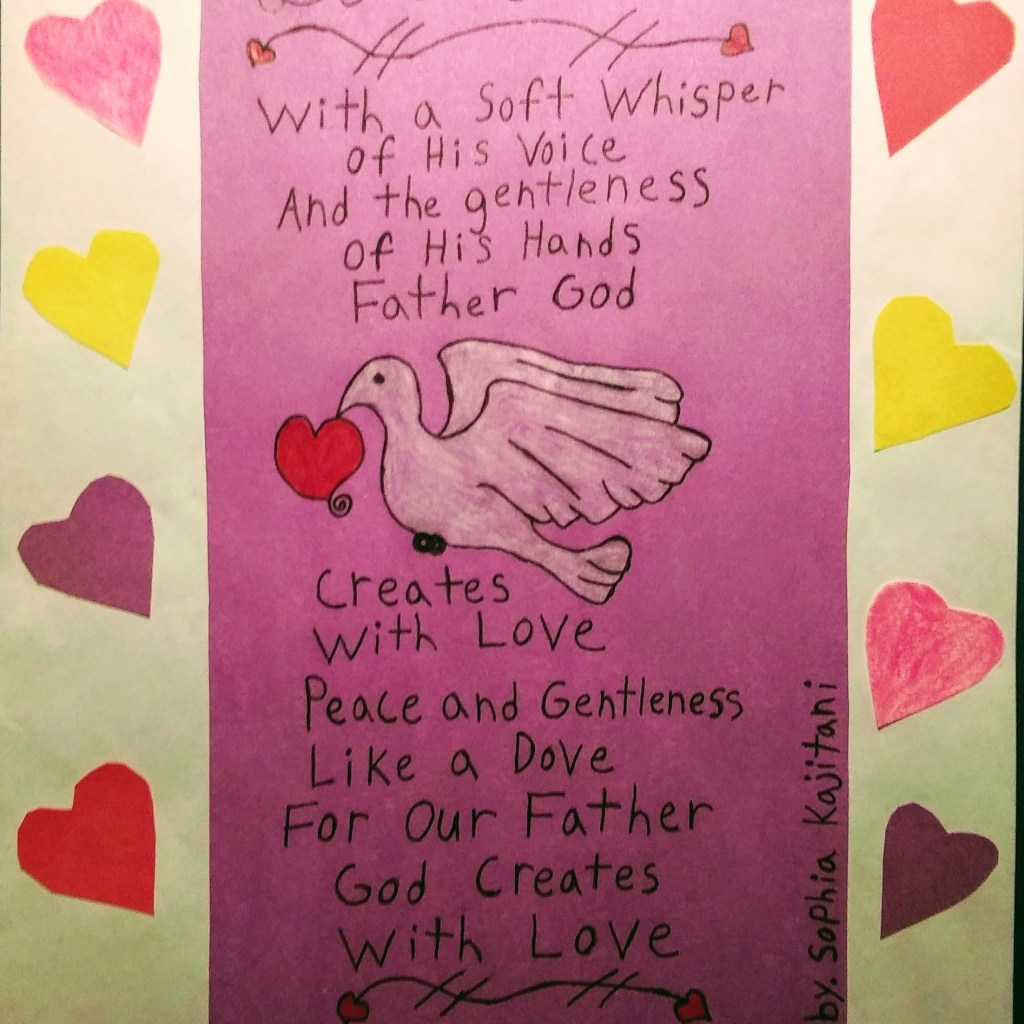 With a Soft Whisper
of His Voice
And the gentleness
of His Hands
Father God
Creates
With Love
Peace and Gentleness
Like a Dove
For Our Father
God Creates
With Love
by. Sophia Kajitani